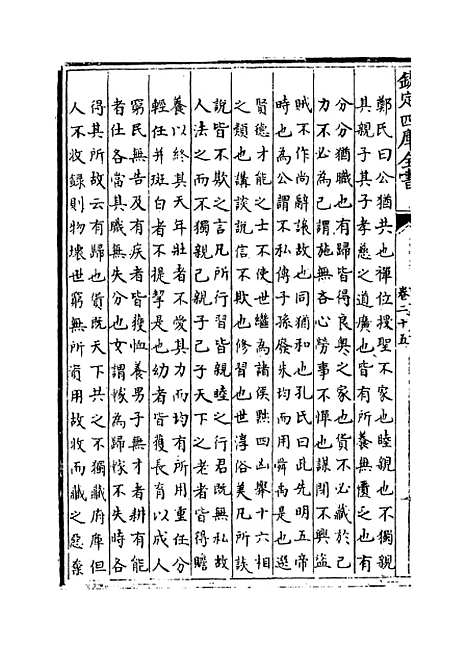 欽定四庫全書
卷二十五
鄭氏曰公猶共也禪位授聖不家也睦親也不獨親
其親子其子孝慈之道廣也皆有所養無匱乏也有
分分猶職也有歸皆得良奥之家也貨不必藏於己
力不必為己謂施無吝心勞事不憚也謀閉不興盜
賊不作尚辭讓故也同猶和也孔氏曰此先明五帝
時也為公謂不私傳子孫廢朱均而用舜禹是也選
賢德才能之士不使世繼為諸侯黜四凶舉十六相
之類也講談說信不欺也修習也世淳俗美凡所談
說皆不欺之言凡所行習皆親睦之行君既無私故
人法之而不獨親己親子己子天下之老者皆得贍
養以終其天年壯者不愛其力而均有所用重任分
輕任并斑白者不提挈是也幼者皆獲長育以成人
窮民無告及有疾者皆獲恤養男子無才者耕有能
者仕各當其職無失分也女謂嫁為歸嫁不失時各
得其所故云有歸也貨既天下共之不獨藏府庫但
人不收録則物壞世窮無所資用故收而藏之惡棄